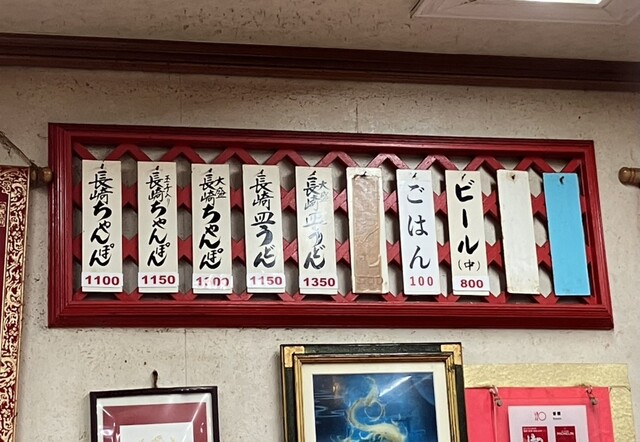 長崎ちゃんぽん
1100
玉子入り
長崎ちゃんぽん
1150
大盛
長崎ちゃんぽん
長崎皿うどん
1150
大盛
長崎皿うどん
1350
ごはん
100
ビール(中)
800